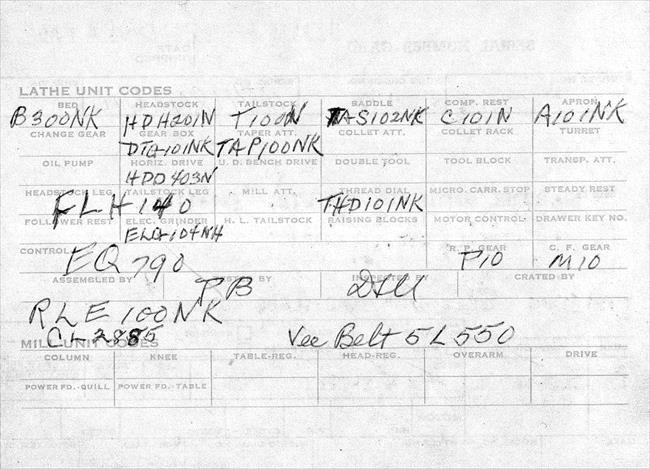 LATHE UNIT CODES
BED HEADSTOCK TAILSTOCK SADDLE COMP. REST APRON
B300NK HDH201N T100N TAS102NK C101N A101NK
CHANGE GEAR GEAR BOX TAPER ATT. COLLET ATT. COLLET RACK TURRET
DTQ101NK TAP100NK
OIL PUMP HORIZ. DRIVE U. D. BENCH DRIVE DOUBLE TOOL TOOL BLOCK TRANSP. ATT.
HDD403N
HEADSTOCK LEG TAILSTOCK LEG MILL ATT. THREAD DIAL MICRO. CARR. STOP STEADY REST
FLH140 THD101NK
FOLLOWER REST ELEC. GRINDER H. L. TAILSTOCK RAISING BLOCKS MOTOR CONTROL DRAWER KEY NO.
ELQ104NH
CONTROL R. P. GEAR C. F. GEAR
EQ 790 P10 M10
ASSEMBLED BY TESTED BY INSPECTED BY CRATED BY
PB
RLE100NK
CL2885 Vee Belt 5L550
MILL UNIT CODES
COLUMN KNEE TABLE-REG. HEAD-REG. OVERARM DRIVE
POWER FD.-QUILL POWER FD.-TABLE